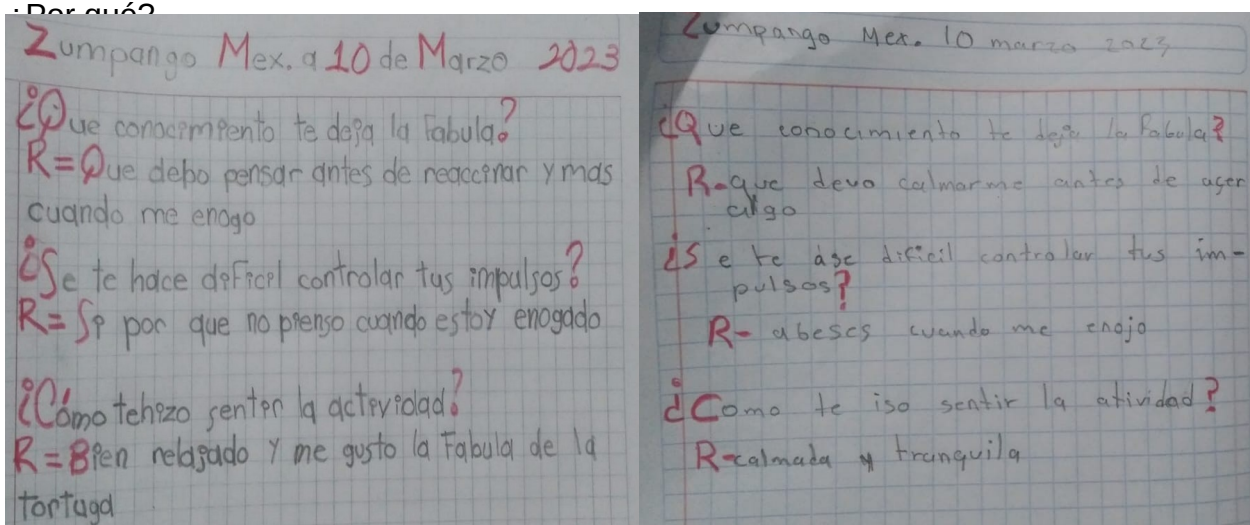 ¿Por qué?
Zumpango Mex. a 10 de Marzo 2023
¿Que conocimiento te deja la Fabula?
R=Que debo pensar antes de reaccinar y mas
cuando me enogo
¿Se te hace dificil controlar tus impulsos?
R= Si por que no pienso cuando estoy enogado
¿Cómo tehizo sentir la actividad?
R=Bien relajado Y me gusto la Fabula de la
tortuga
Zumpango Mex. 10 marzo 2023
¿Que conocimiento te deja la Fabula?
R-que devo calmarme antes de aser
algo
¿Se te ase dificil controlar tus im-
pulsos?
R- abeses cuando me enojo
¿Como te iso sentir la atividad?
R-calmada y tranquila